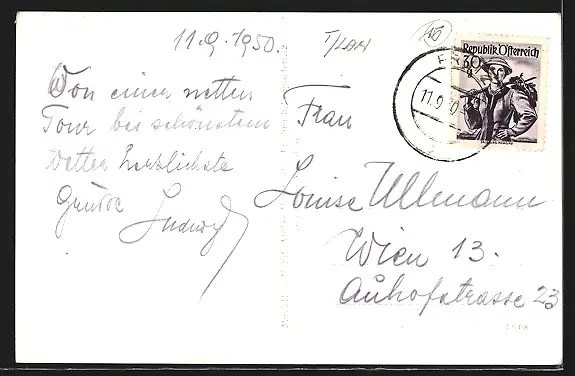 11.9.1950.
Von einer netten
Tour bei schönstem
Wetter herzlichste
Grüsse
Ludwig
T/LAH
Frau
Louise Ullmann
Wien 13.
Auhofstrasse 23
Republik Österreich
30
11.9